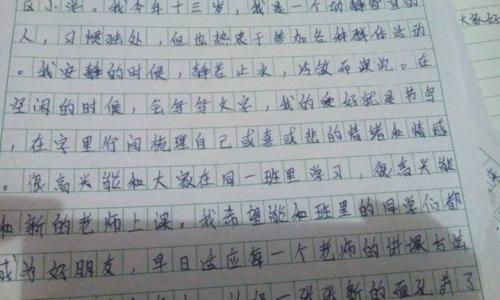 区小学。我今年十三岁,我是一个动静皆宜的
人,习惯独处,但也热衷于参加各种集体活动
。我安静的时候,静若止水,内敛而深沉。在
空闲的时候,会写写文字,我的爱好就是书写
,在字里行间梳理自己或喜或悲的情绪和情感
。很高兴能和大家在同一班里学习,很高兴能
和新的老师上课。我希望能和班里的同学们都
成为好朋友,早日适应每一个老师的讲课方法
一张张新的面孔
大家好